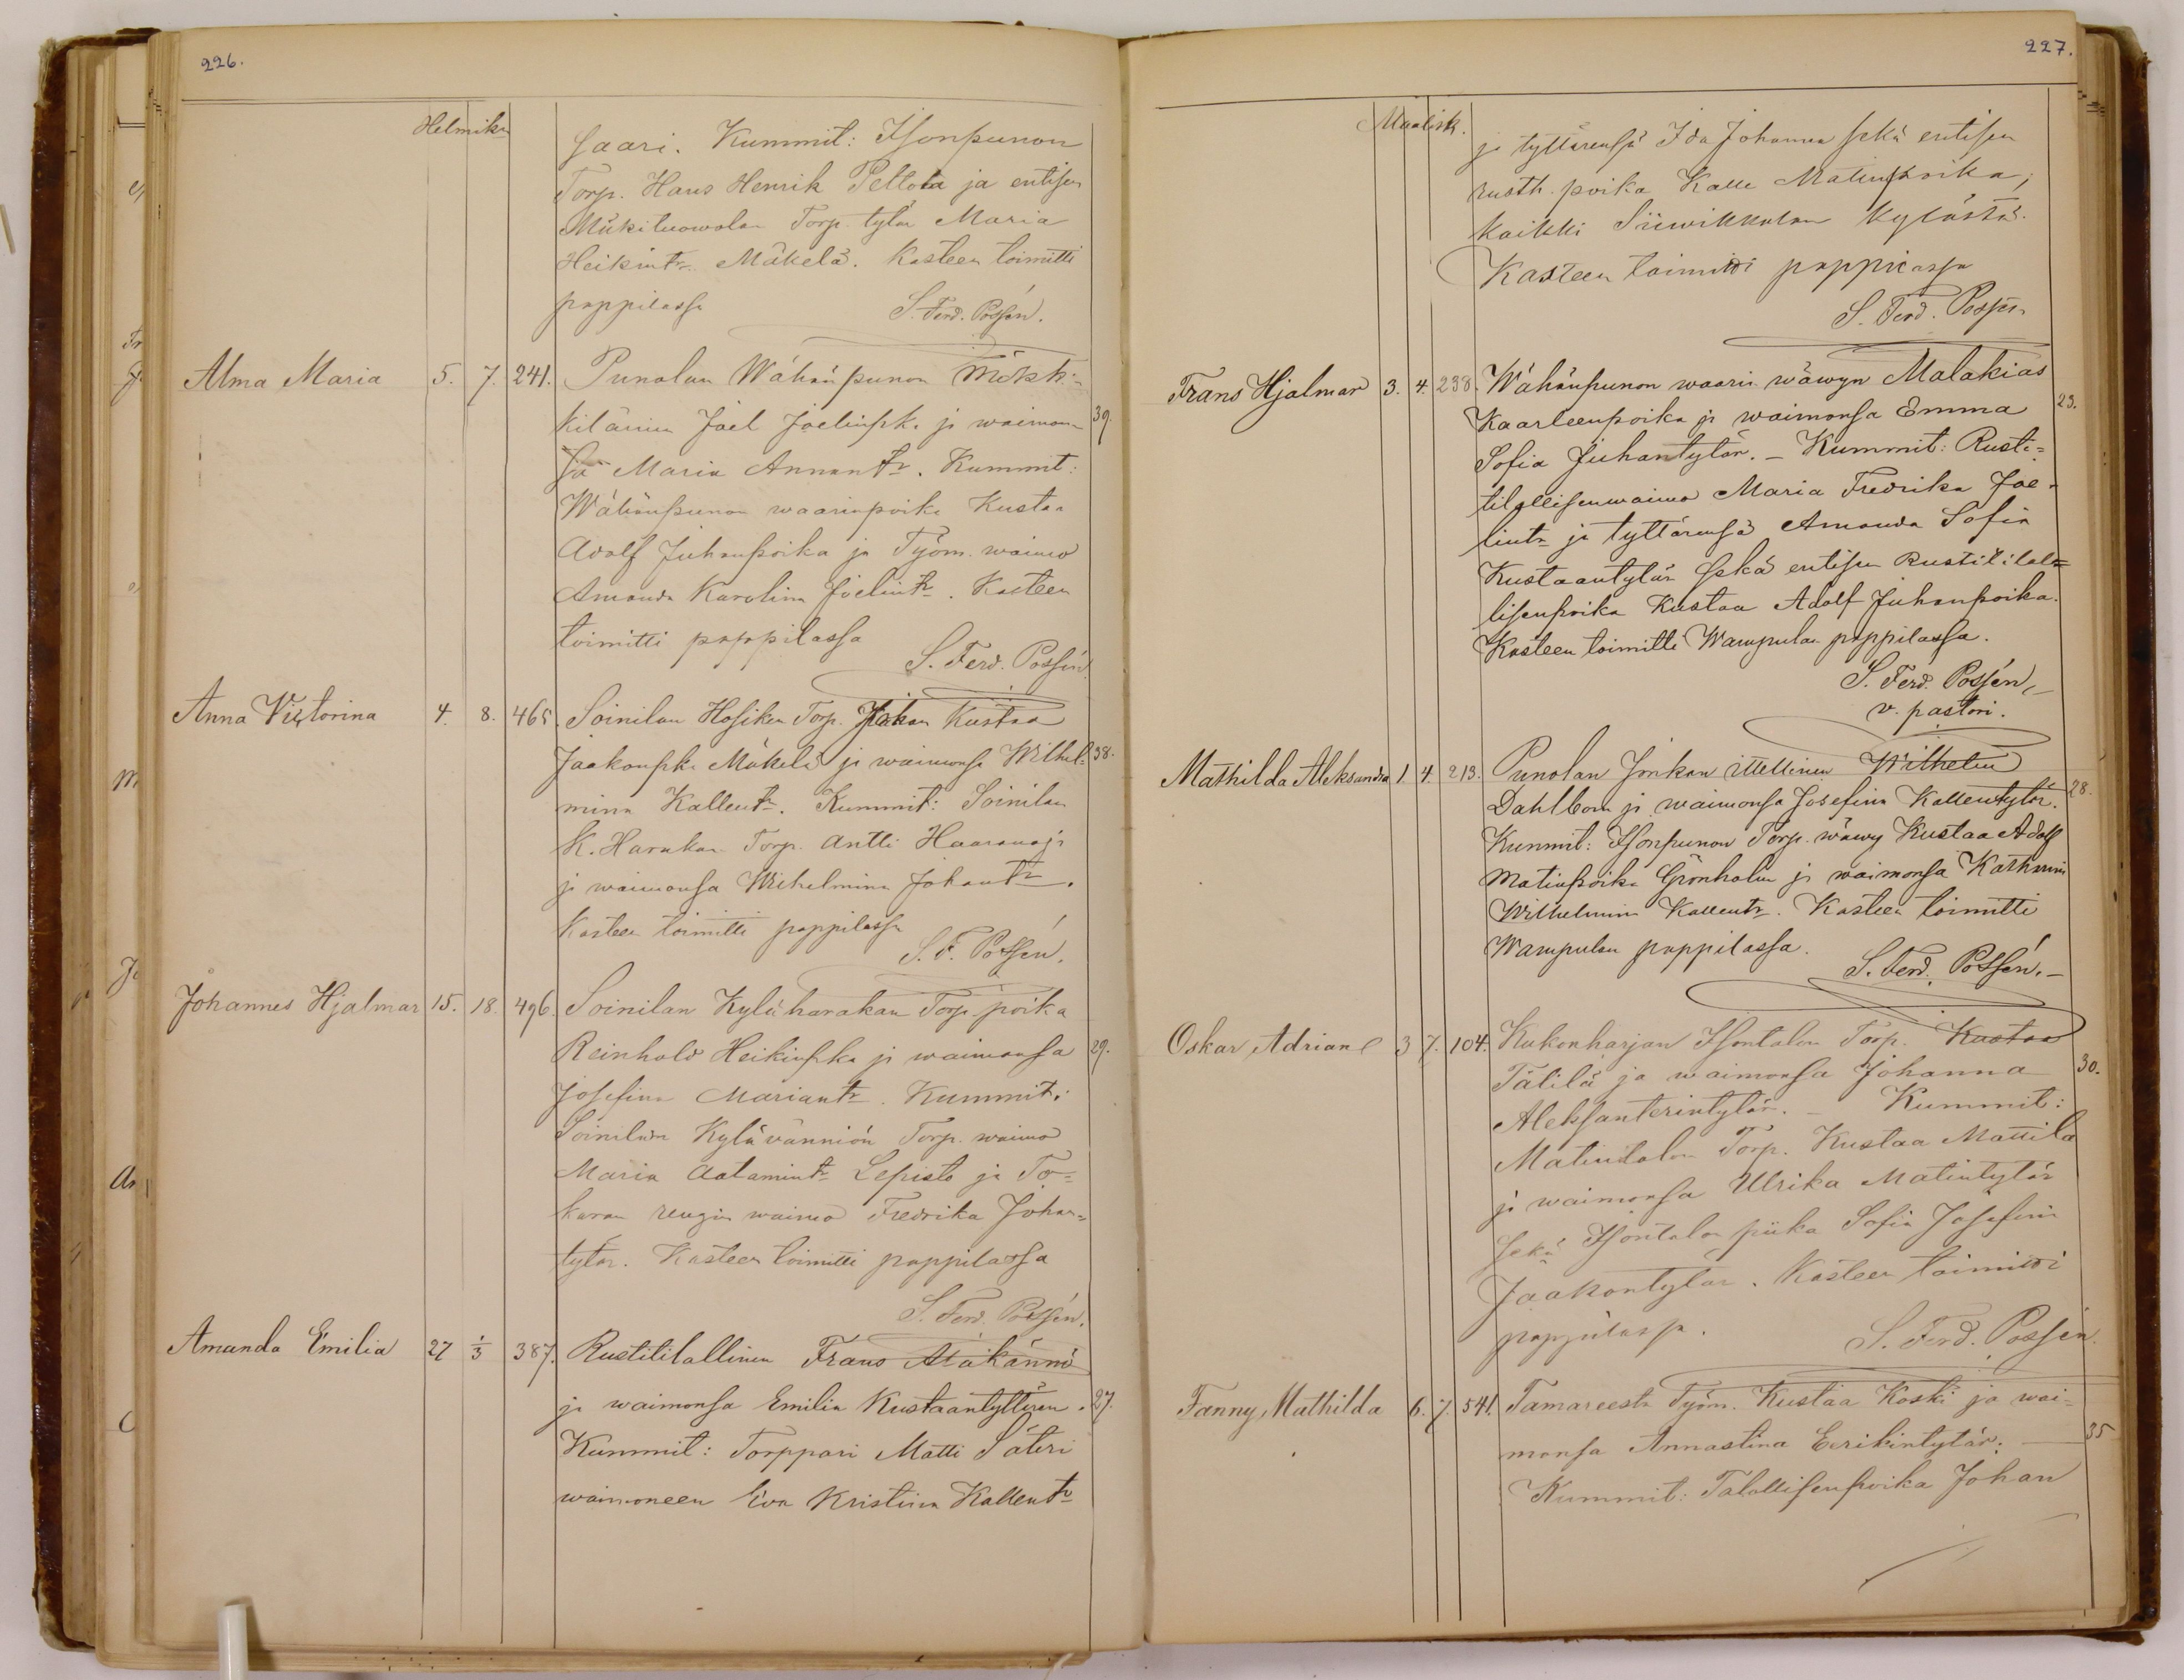 226.
Helmiku
saari. Kummit: Isonpunon
Torp. Hans Henrik Peltola ja entisen
Mäkituowolan Torp. tytär Maria
Heikint:r Mäkelä. Kasteen toimitti
pappilassa S. Ferd. Possén.
Alma Maria 5. 7. 241. Punolan Wähänpunon Mökki-
kiläinen Joel Joelinpk. ja waimon- 39.
sa Maria Annant:r. Kummit:
Wähänpunon waarinpoika Kustaa
Adolf Juhanpoika ja Työm. waimo
Amanda Karolina Joelint:r. Kasteen
toimitti pappilassa
S. Ferd. Possén.
Anna Victorina 4. 8. 465. Soinilan Hosiken Torp. Kustaa
Jaakonpka Mäkelä ja waimonsa Wilhel- 38.
mina Kallent:r. Kummit: Soinilan
K. Harakan Torp. Antti Haaranoja
ja waimonsa Wilhelmina Johant:r.
Kasteen toimitti pappilassa
S. F. Possén.
Johannes Hjalmar 15. 18. 496. Soinilan Kyläharakan Torp. poika
Reinhold Heikinpka ja waimonsa 29.
Josefina Mariant:r. Kummit:
Soinilan Kylävännion Torp. waimo
Maria Aatamint:r Lepistö ja To-
karan rengin waimo Fredrika Johan-
tytär. Kasteen toimitti pappilassa
S. Ferd. Possén.
Amanda Emilia 27 1/3 387. Rustitilallinen Frans Alikännö
ja waimonsa Emilia Kustaantyttären. 27.
Kummit: Torppari Matti Säteri
waimoneen Eva Kristiina Kallent:r
227.
Maalisk.
ja tyttärensä Ida Johanna sekä entisen
rusth. poika Kalle Matinpoika;
kaikki Siiwikkalan Kylästä.
Kasteen toimitti pappilassa
S. Ferd. Possén
Frans Hjalmar 3. 4. 238. Wähänpunon waarin wäwyn Malakias
Kaarleenpoika ja waimonsa Emma 23.
Sofia Juhantytär. - Kummit: Rusti-
tilallisenwaimo Maria Fredrika Joe-
lint:r ja tyttärensä Amanda Sofia
Kustaantytär sekä entisen Rustitilal-
lisenpoika Kustaa Adolf Juhanpoika.
Kasteen toimitti Wampulan pappilassa.
S. Ferd. Possén,
v. pastori.
Mathilda Aleksandra 1. 4. 213. Punolan Jonkan ittellinen Wilhelm
Dahlbom ja waimonsa Josefina Kallentytär. 28.
Kummit: Isonpunon Torp. wäwy Kustaa Adolf
Matinpoika Grönholm ja waimonsa Katharina
Wilhelmina Kallent:r. Kasteen toimitti
Wampulan pappilassa.
S. Ferd. Possén.
Oskar Adrian 3 7. 104. Kukonharjan Isontalon Torp. Kustaa
Tälilä ja waimonsa Johanna 30.
Aleksanterintytär. - Kummit:
Matintalon Torp. Kustaa Mattila
ja waimonsa Ulrika Matintytär
sekä Isontalon piika Sofia Josefina
Jaakontytär. Kasteen toimitti
pappilassa. S. Ferd. Possén
Fanny Mathilda 6. 7. 541. Tamareesta Työm. Kustaa Koski ja wai-
monsa Annastina Eerikintytär. 35
Kummit: Talollisenpoika Johan